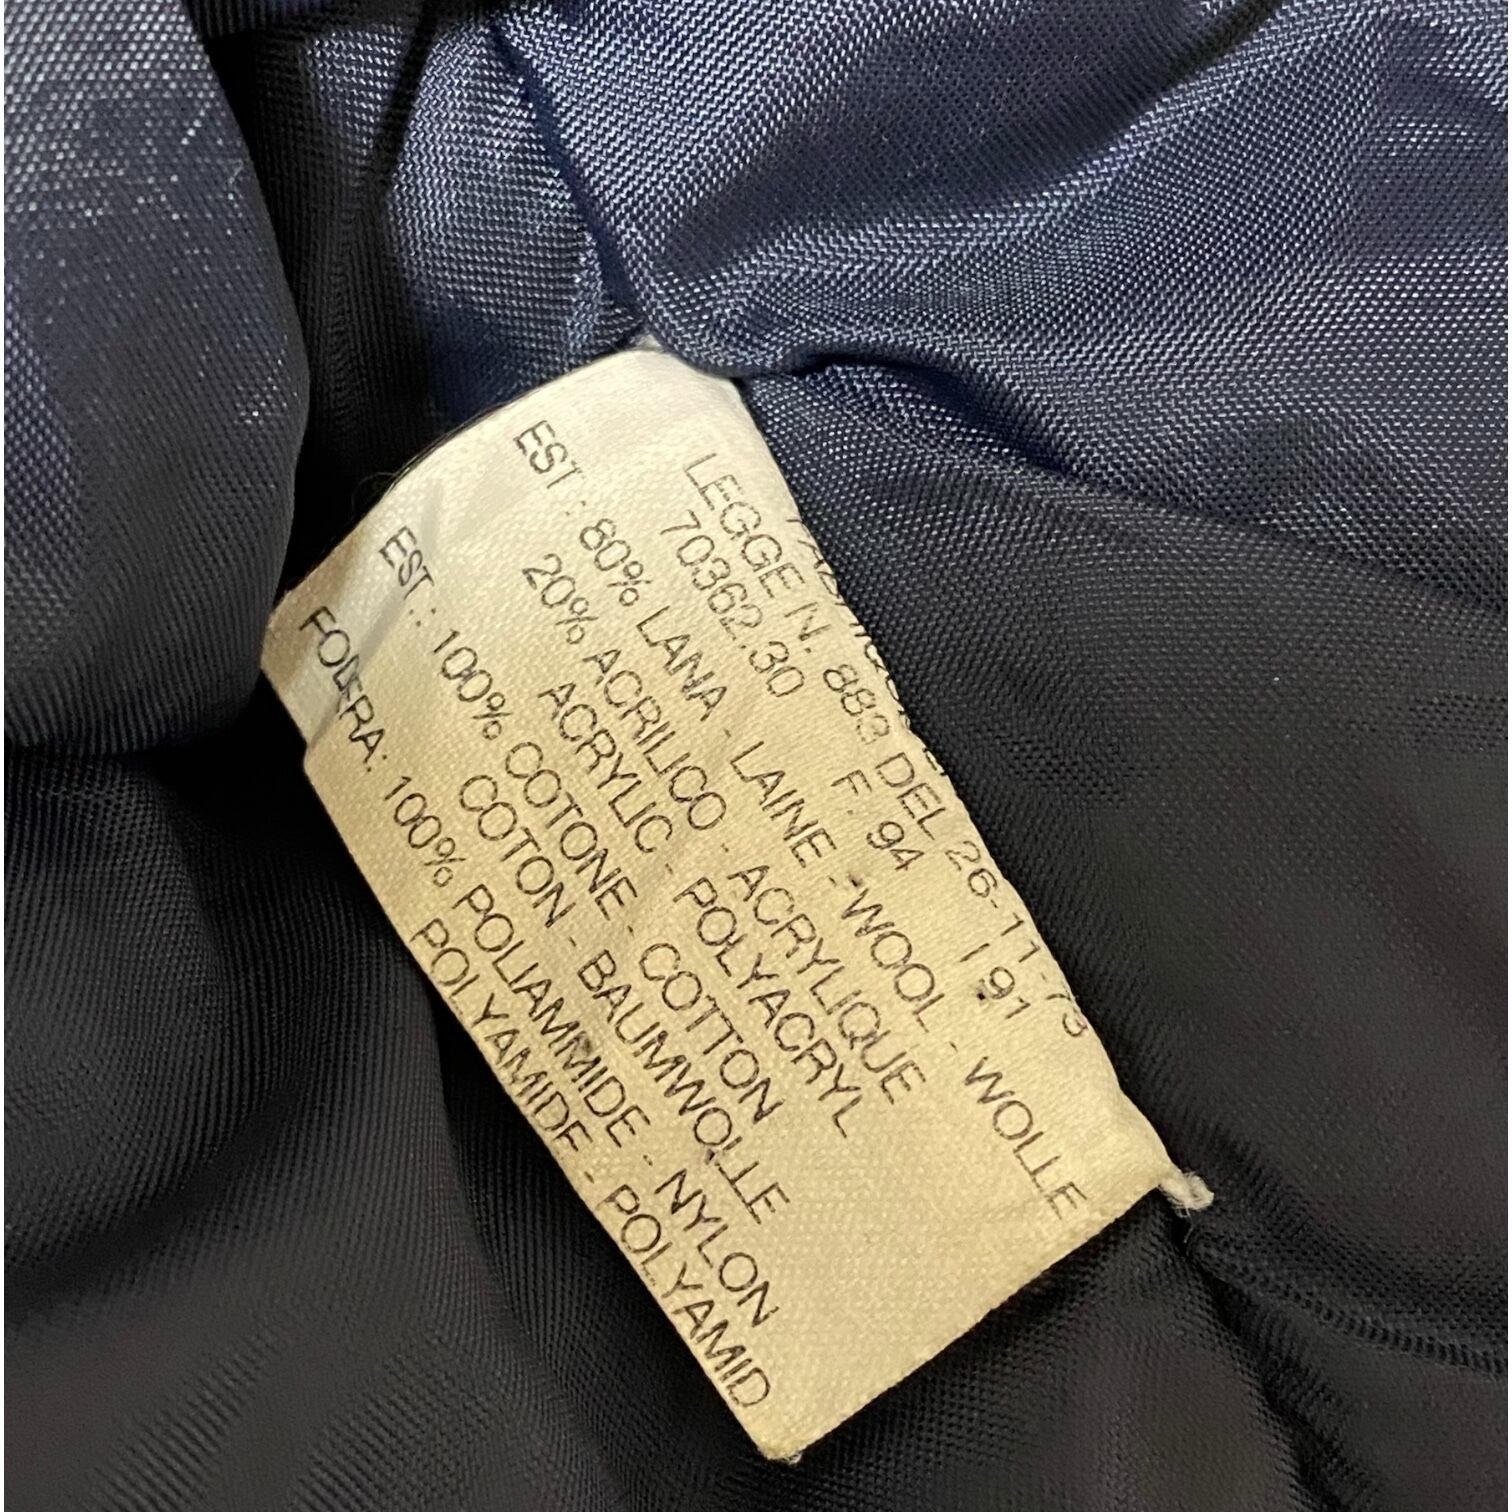 LEGGE N. 883 DEL 26-11-73
70362.30 F. 94 I 91
EST : 80% LANA - LAINE - WOOL - WOLLE
20% ACRILICO - ACRYLIQUE
ACRYLIC - POLYACRYL
EST : 100% COTONE - COTTON
COTON - BAUMWOLLE
FODERA: 100% POLIAMMIDE - NYLON
POLYAMIDE - POLYAMID